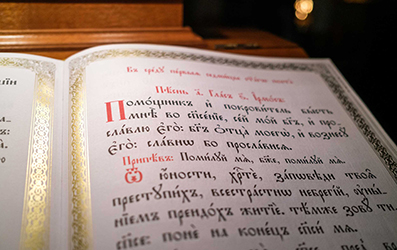 Въ среду первыѧ седмицы
Пѣснь а҃. Гласъ ѕ҃. І҆рмо́съ:
Помо́щникъ и҆ покрови́тель бы́сть
мнѣ̀ во сп҃се́нїе, се́й мо́й бг҃ъ, и҆ про-
сла́влю є҆го̀: бг҃ъ ѻ҆тца̀ моегѡ̀, и҆ вознесꙋ̀
є҆го̀: сла́внѡ бо просла́висѧ.
Припѣ́въ: Поми́лꙋй мѧ̀, бж҃е, поми́лꙋй мѧ̀.
Ѿ ю҆́ности, хрⷭ҇тѐ, за́пѡвѣди твоѧ̑
престꙋпи́хъ, всестра́стнѡ небрегі́й, ᲂу҆ны́-
нїемъ преидо́хъ житїѐ. тѣ́мже зовꙋ́ ти
сп҃се: понѐ на коне́цъ сп҃сѝ мѧ̀.